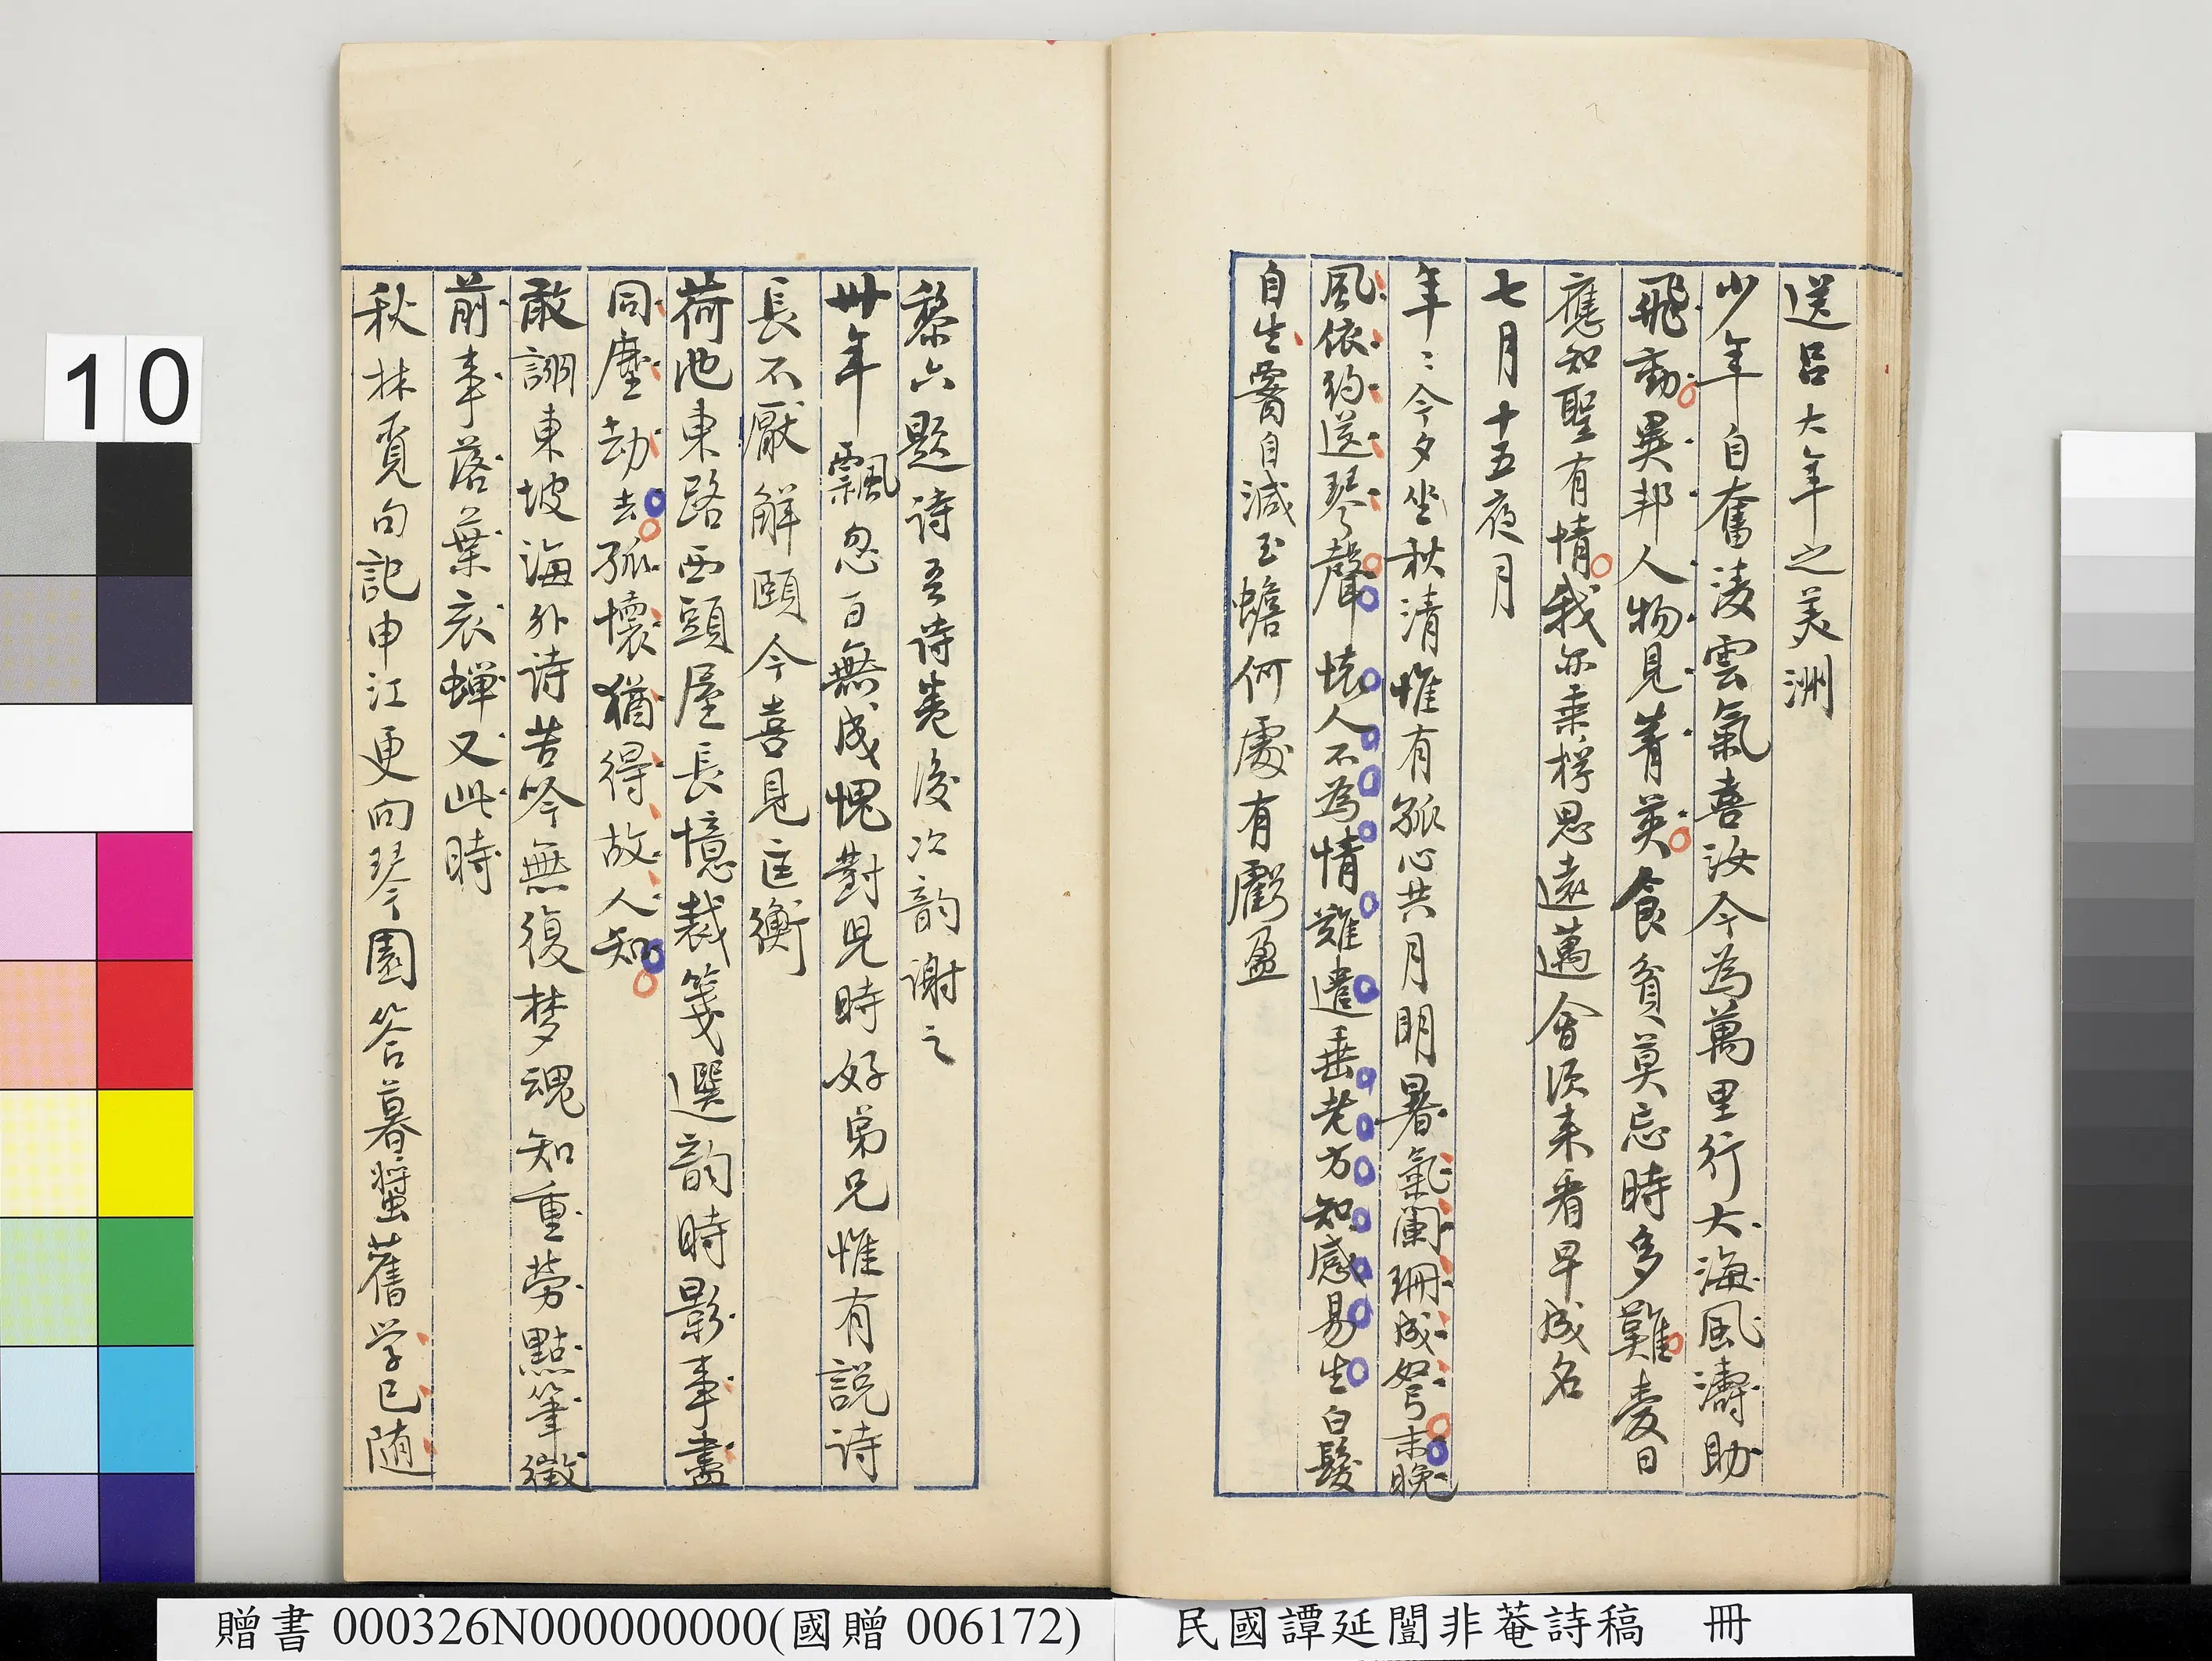 送呂大年之美洲
少年自奮淩雲氣喜汝今為萬里行大海風濤助
飛動異邦人物見菁英食貧莫忘時多難愛日
應知聖有情我亦乘桴思遠邁會須來看早成名
七月十五夜月
年〻今夕坐秋清惟有孤心共月明暑氣闌珊成弩末晚
風依約送琴聲懷人不為情難遣垂老方知感易生白髮
自生霿自減玉蟾何處有虧盈
黎六題詩吾詩卷後次韵謝之
卅年飄忽百無成愧對兒時好弟兄惟有說詩
長不厭解頤今喜見匡衡
荷池東路西頭屋長憶裁箋選韵時影事盡
同塵劫去孤懷猶得故人知
敢詡東坡海外詩苦吟無復梦魂知重勞點筆徵
前事落葉哀蟬又此時
秋林覓句記申江更向琴園答暮螿舊学已随
10
贈書 000326N000000000(國贈 006172)
民國譚延闓非菴詩稿 冊